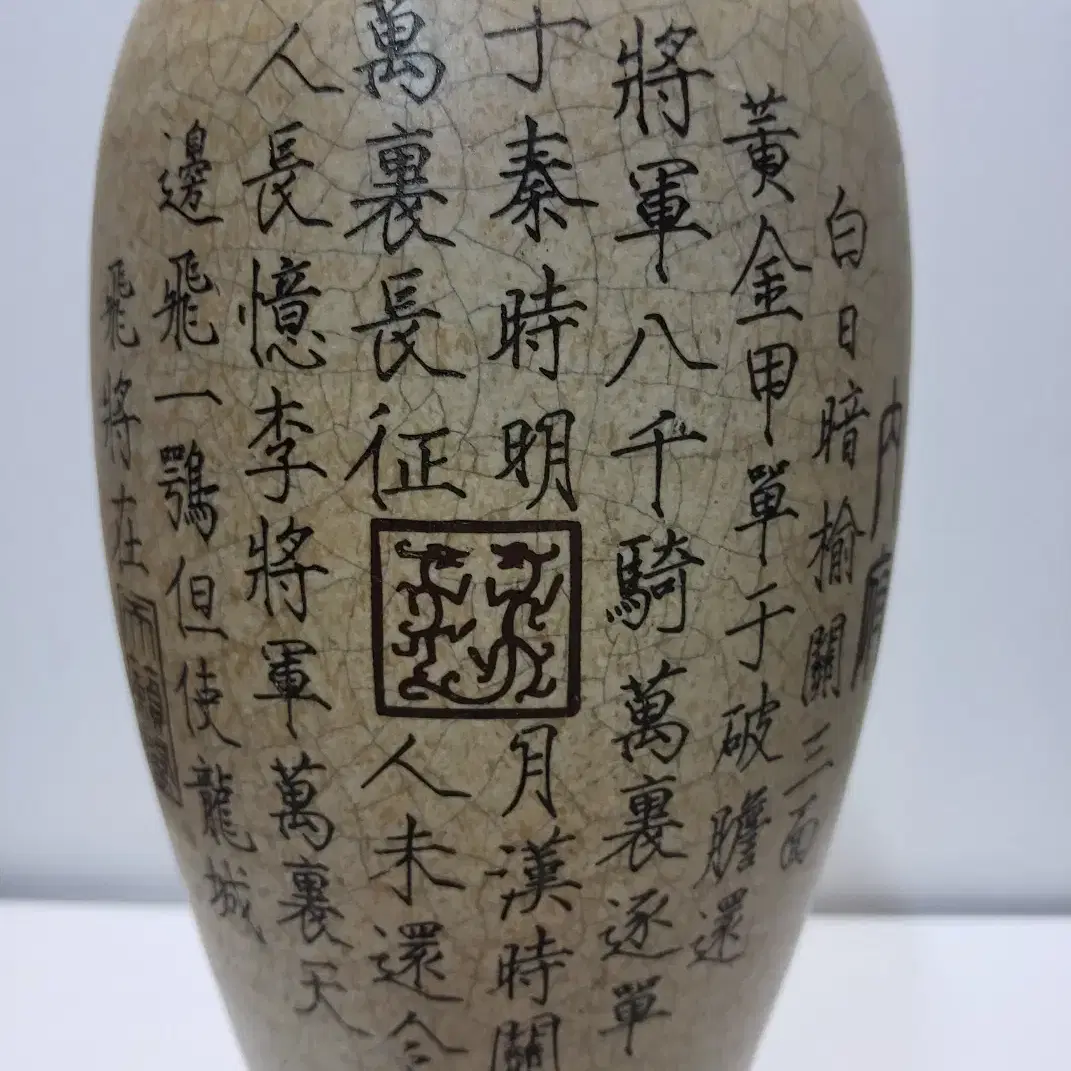 內府
白日暗榆關三面
黃金甲單于破膽還
將軍八千騎萬裏逐單
于秦時明月漢時關
萬裏長征人未還今
人長憶李將軍萬裏天
邊飛一鶚但使龍城
飛將在